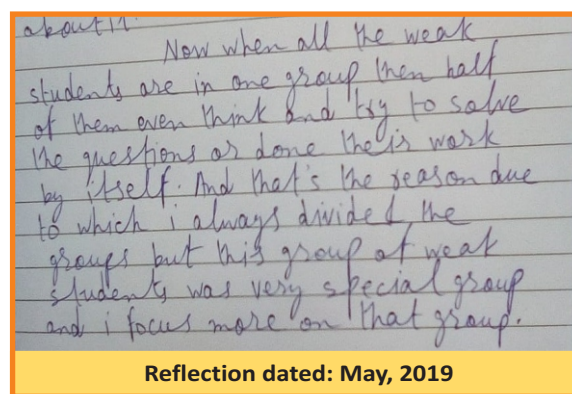 about it.
Now when all the weak
students are in one group then half
of them even think and try to solve
the questions or done their work
by itself. And that's the reason due
to which i always divided the
groups but this group of weak
students was very special group
and i focus more on that group.
Reflection dated: May, 2019